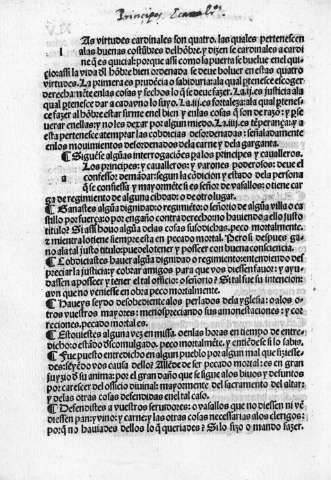 Principes, Caual.os
As virtudes cardinales son quatro. las quales pertenescen
alas buenas costũbres del hõbre. y dizen se cardinales a cardi
ne q̃ es quicial: porque assi como la puerta se buelue en el qui
cio: assi la vida dl hõbre bien ordenada se deue boluer en estas quatro
virtudes. La primera es prudẽcia o sabiduria: ala qual ꝑtenesce escoger
derecha mẽte enlas cosas y fechos lo q̃ se deue fazer. La .ij. es justicia ala
qual ꝑtenesce dar a cada vno lo suyo. La .iij. es fortaleza: ala qual ꝑtenes
ce fazer al hõbre estar firme en el bien y enlas cosas q̃ son de razõ: y ꝑse
uerar enellas: y no les dexar por algun miedo. La .iiij. es tẽperança: a
esta pertenesce atemprar las cobdicias desordenadas: señaladamente
enlos mouimientos desordenados dela carne y dela garganta.
¶ Siguẽse algũas interrogaciões ꝑa los prĩcipes y caualleros.
Los principes: y caualleros: y varones poderosos: deue el
a confessor: demãdar: segun la cõdicion y estado dela persona
que se confiessa y mayormẽte si es señor de vasallos: o tiene car
ga de regimiento de alguna cibdad: o de otro lugar.
¶ Ganastes algũa dignidad o regimiẽto: o señorio de algũa villa o ca
stillo por fuerça: o por engaño contra derecho: no hauiendo a ello justo
titulo? Si assi houo algũa delas cosas susodichas, peco mortalmente.
z mientra lo tiene siempre esta en pecado mortal. Pero si despues ga
no ala tal justo titulo: puede lo tener y posseer con buena consciencia.
¶ Cobdiciastes hauer algũa dignidad o regimiento: entendiendo des
preciar la justicia: y cobrar amigos para que vos diessen fauor: y ayu
dassen a posseer y tener el tal officio: o señorio? Si tal fue su intencion:
ayn que no veniesse en obra peco mortalmente.
¶ Haueys seydo desobediente alos perlados dela yglesia: o alos o
tros vuestros mayores: menospreciando sus amonestaciones: y cor
reciones. pecado mortal es.
¶ Estouistes alguna vez en missa. o enlas horas en tiempo de entre
dicho: o estãdo discomulgado. peco mortalmẽte. y entiẽdese si lo sabia.
¶ Fue puesto entredicho en algun pueblo por algun mal que fiziesse
des: seyẽdo vos causa dello? Allẽde de ser pecado mortal: es en gran
juyzio d su anima: por el gran daño que se sigue alos biuos y defuntos
por carescer del officio diuinal: mayormente del sacramento del altar:
y delas otras cosas defendidas enel tal caso.
¶ Defendistes a vuestros seruidores: o vasallos que no diessen ni vẽ
diessen pan: y vino: y carne: y las otras cosas necessarias alos clerigos:
porq̃ no hauiades dellos lo q̃ queriades? Si lo fizo o mando fazer.